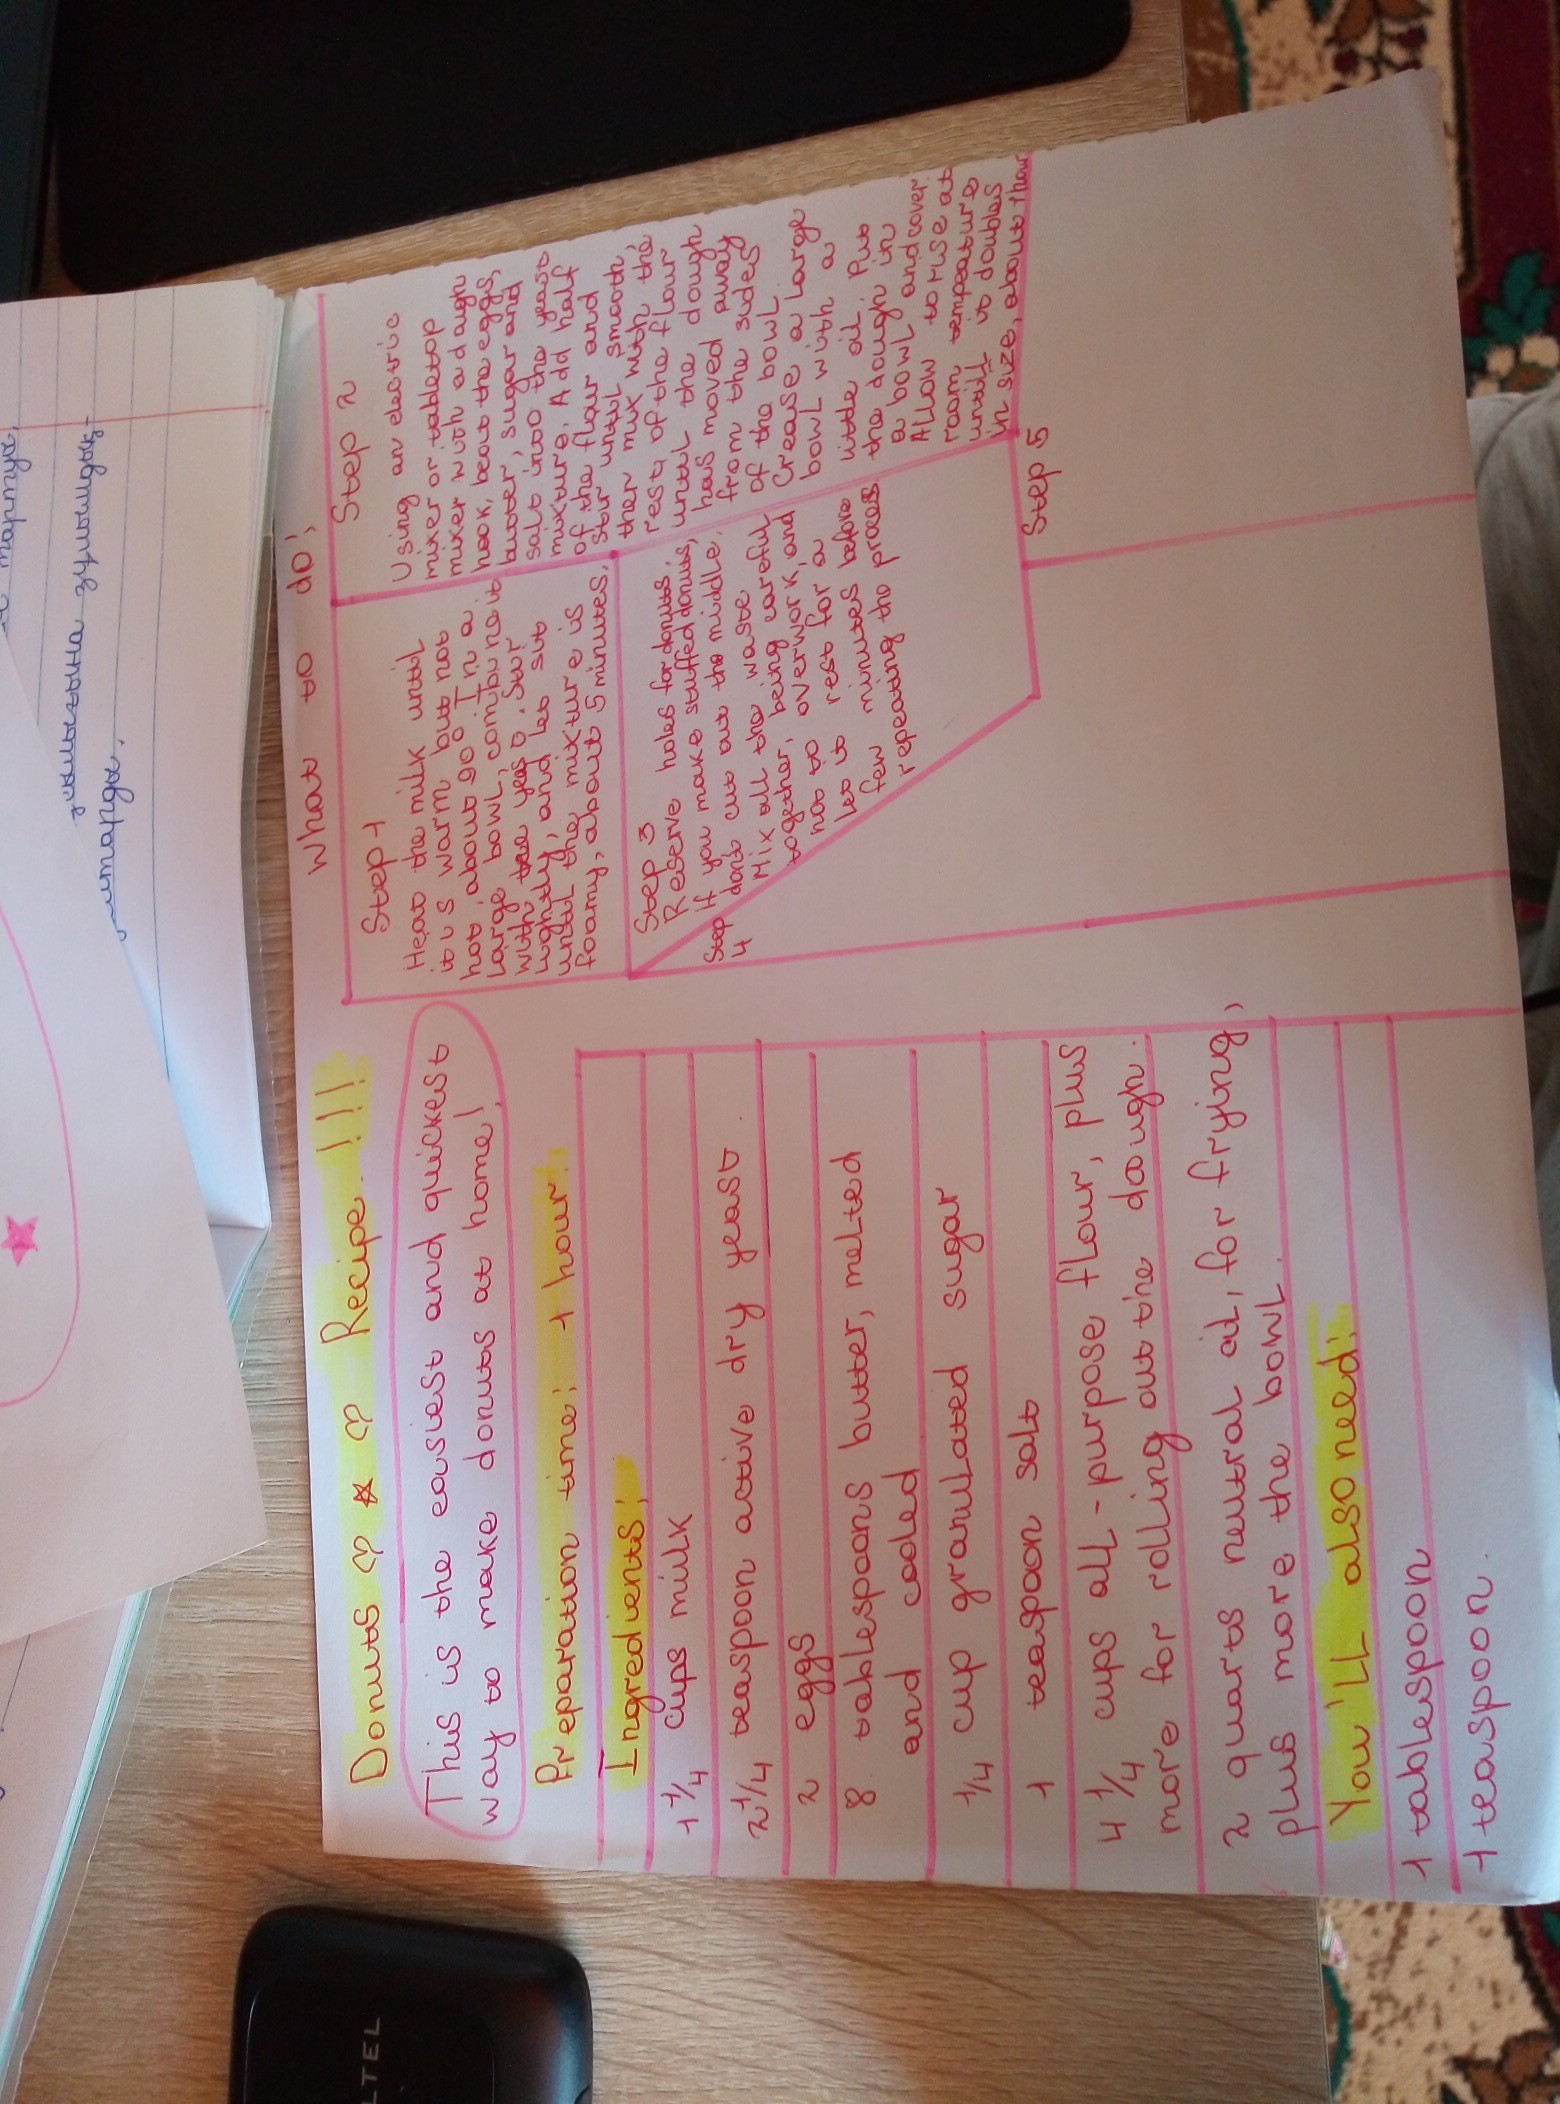 Donuts ♡ ☆ ♡ Recipe !!!
This is the easiest and quickest
way to make donuts at home!
Preparation time: 1 hour.
Ingredients:
1 1/4 cups milk
2 1/4 teaspoon active dry yeast.
2 eggs
8 tablespoons butter, melted
and cooled
1/4 cup granulated sugar
1 teaspoon salt
4 1/4 cups all-purpose flour, plus
more for rolling out the dough.
2 quarts neutral oil, for frying,
plus more the bowl.
You'll also need:
1 tablespoon
1 teaspoon.
What to do:
Step 1
Heat the milk until
it is warm but not
hot, about 90° In a
large bowl, combine it
with the yeast. Stir
lightly, and let sit
until the mixture is
foamy, about 5 minutes.
Step 2
Using an electric
mixer or tabletop
mixer with a dough
hook, beat the eggs,
butter, sugar and
salt into the yeast
mixture. Add half
of the flour and
stir until smooth,
then mix with the
rest of the flour
until the dough
has moved away
from the sides
of the bowl.
Grease a large
bowl with a
little oil. Put
the dough in
a bowl and cover.
Allow to rise at
room tempeature
until it doubles
in size, about 1 hour
Step 3
Reserve holes for donuts,
If you make stuffed donuts,
don't cut out the middle.
Step 4
Mix all the waste
together, being careful
not to overwork, and
let it rest for a
few minutes before
repeating the process
Step 5
LTEL